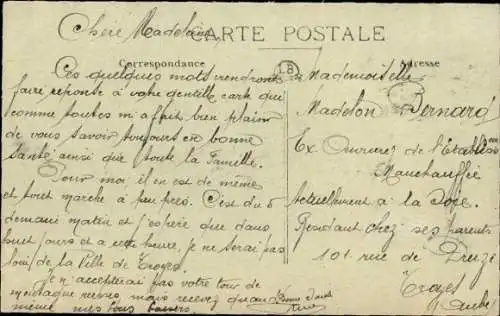 Chère Madeleine
CARTE POSTALE
Correspondance
Adresse
LB
Ces quelques mots viendront
faire réponse à votre gentille carte qui
comme toutes m'a fait bien plaisir
de vous savoir toujours en bonne
Santé ainsi que toute la Famille.
Pour moi il en est de même
et tout marche à peu près. C'est du
demain matin et j'espère que dans
huit jours et a cette heure, je ne serai pas
loin de la Ville de Troyes
Je n'accepterai pas votre tour de
mais recevez quand
même mes bons baisers
Bonne Santé
Mademoiselle
Madelon Bernard
Ex Ouvrière de l'Etablissem
Manchauffée
actuellement à la
Résidant chez ses parents
101 rue de Preize
Troyes
Aube